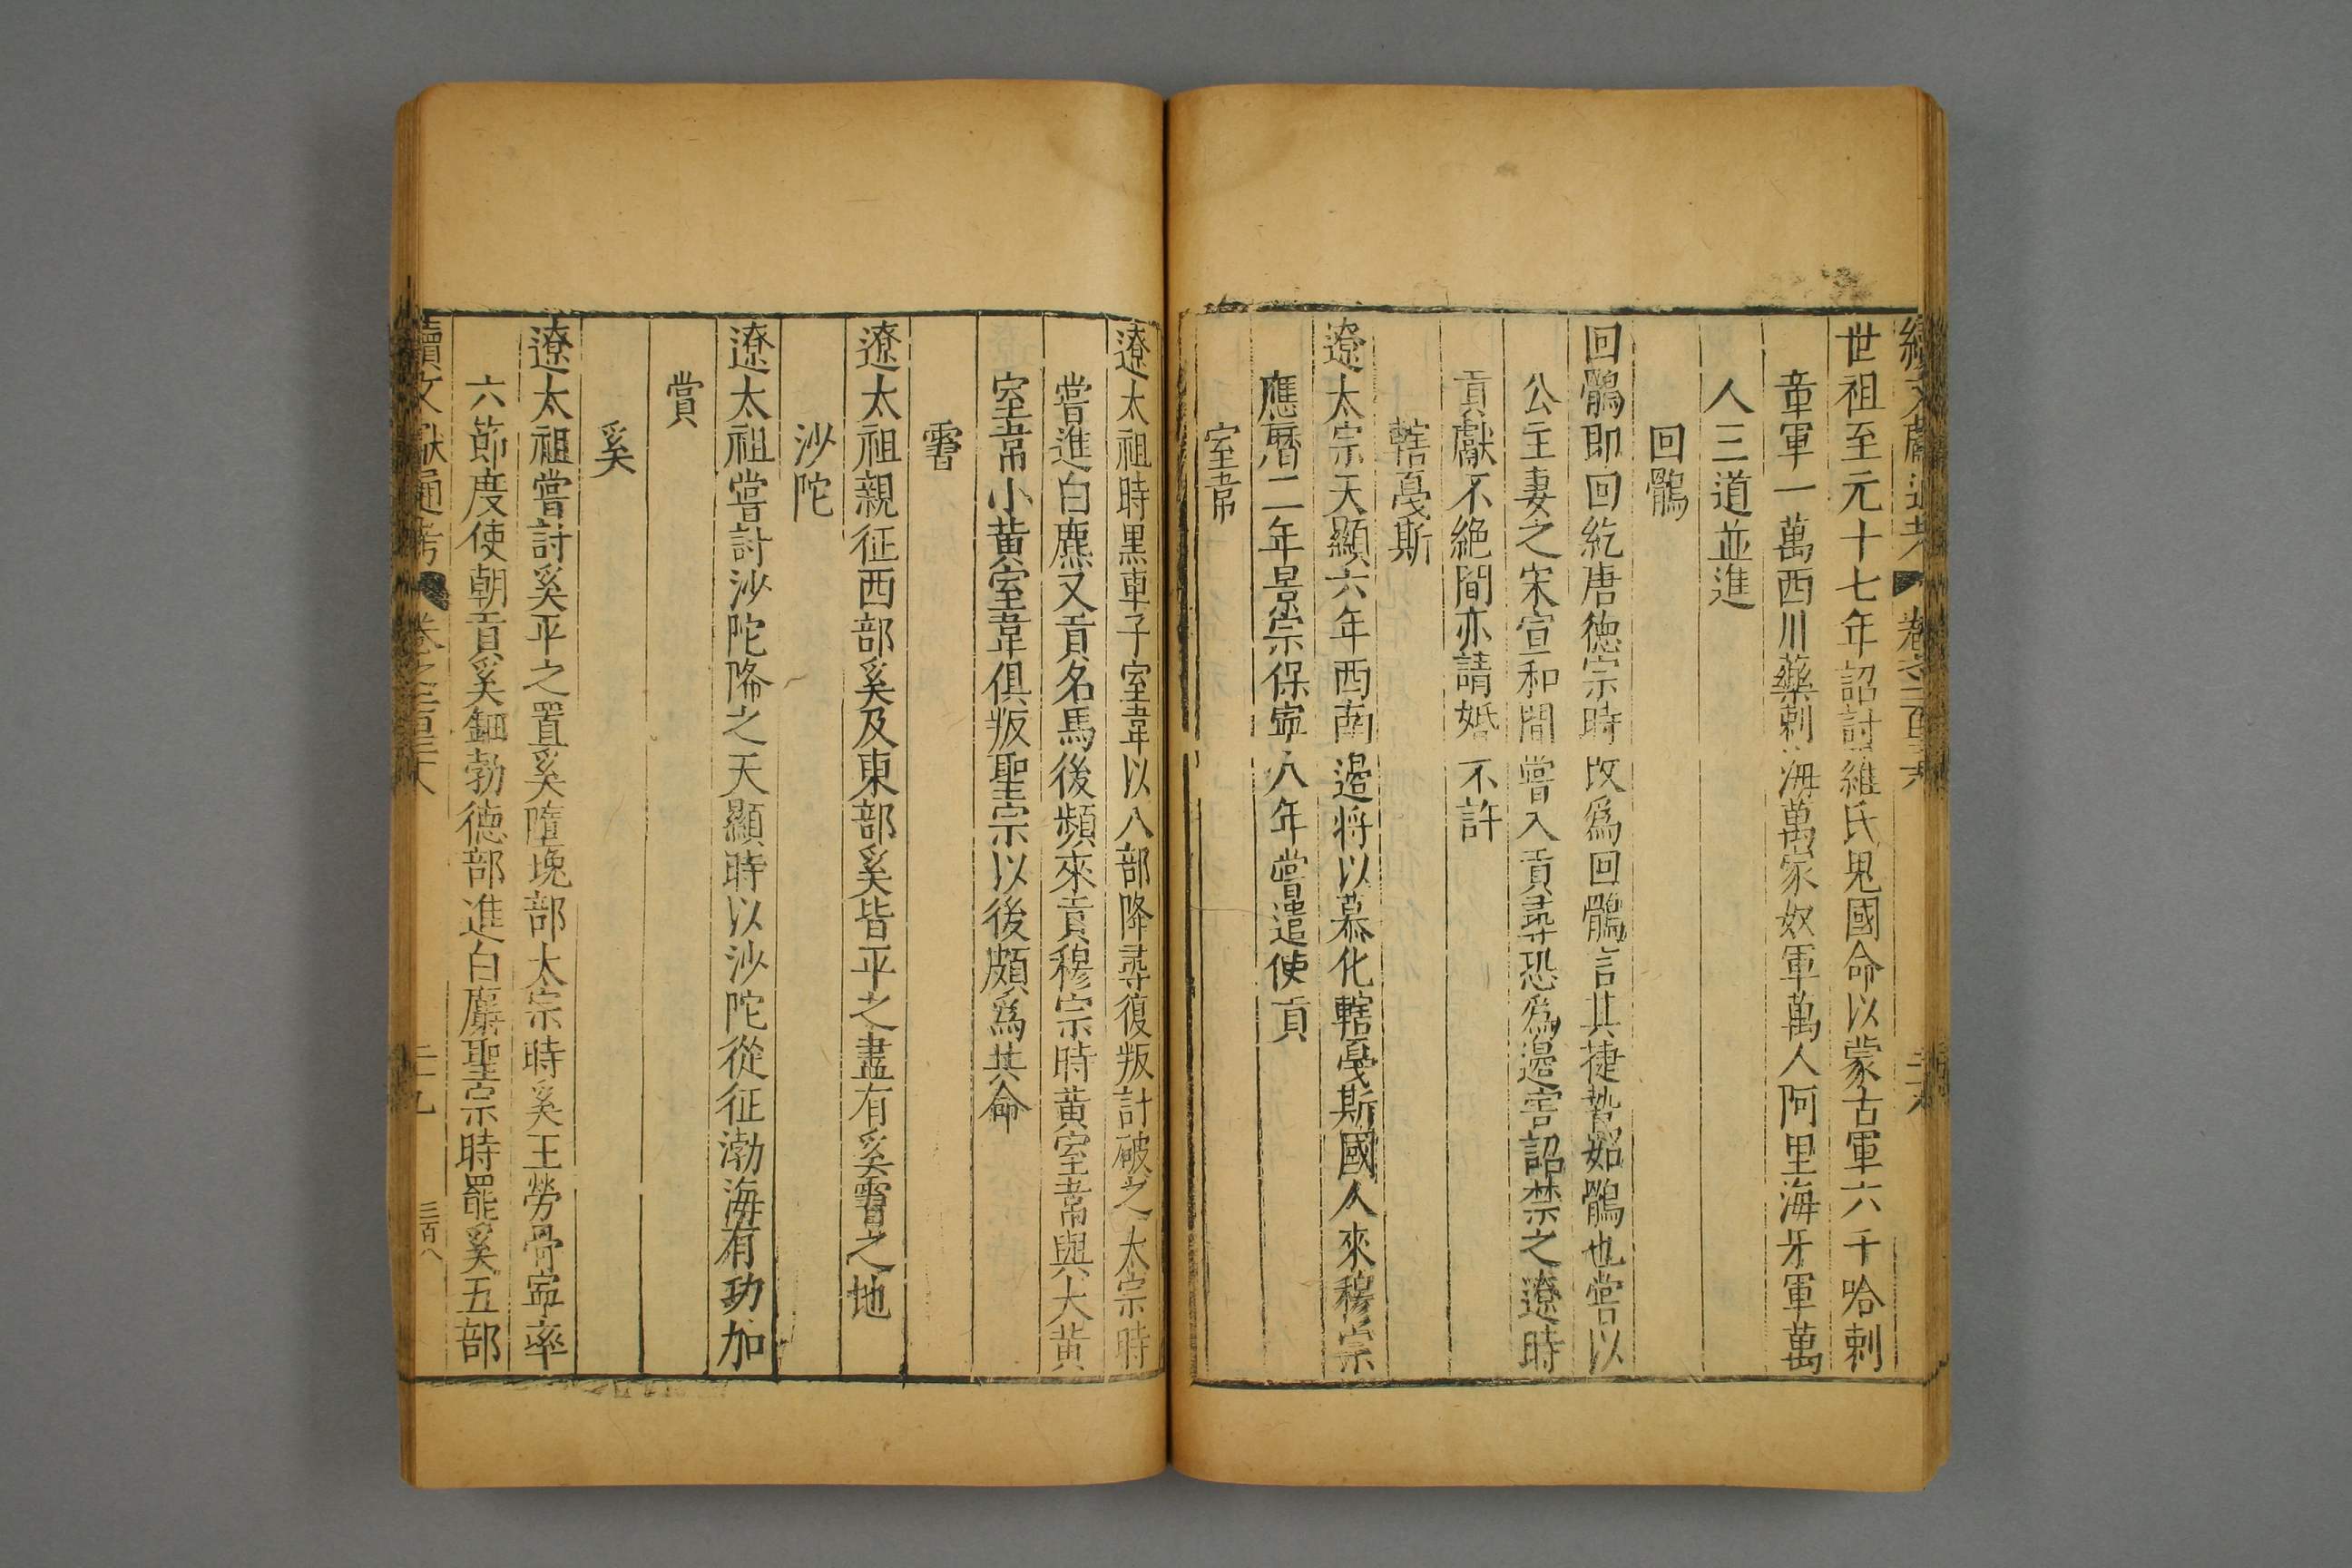 世祖至元十七年詔討羅氏鬼國命以蒙古軍六千哈剌
章軍一萬西川藥剌海萬家奴軍萬人阿里海牙軍萬
人三道並進
回鶻
回鶻即回紇唐德宗時改爲回鶻言其捷鷙如鶻也嘗以
公主妻之宋宣和間嘗入貢尋恐爲邊害詔禁之遼時
貢獻不絕間亦請婚不許
轄戞斯
遼太宗天顯六年西南邊將以慕化轄戞斯國人來穆宗
應曆二年景宗保寧八年嘗遣使貢
室韋
遼太祖時黑車子室韋以八部降尋復叛計破之太宗時
嘗進白麃又貢名馬後頻來貢穆宗時黃室韋與大黃
室韋小黃室韋俱叛聖宗以後頗爲共命
霫
遼太祖親征西部奚及東部奚皆平之盡有奚霫之地
沙陀
遼太祖嘗討沙陀降之天顯時以沙陀從征渤海有功加
賞
奚
遼太祖嘗討奚平之置奚墮瑰部太宗時奚王勞骨寧率
六節度使朝貢奚鉏勃德部進白麝聖宗時罷奚五部
續文獻通考 卷之二百
二十九
三百八